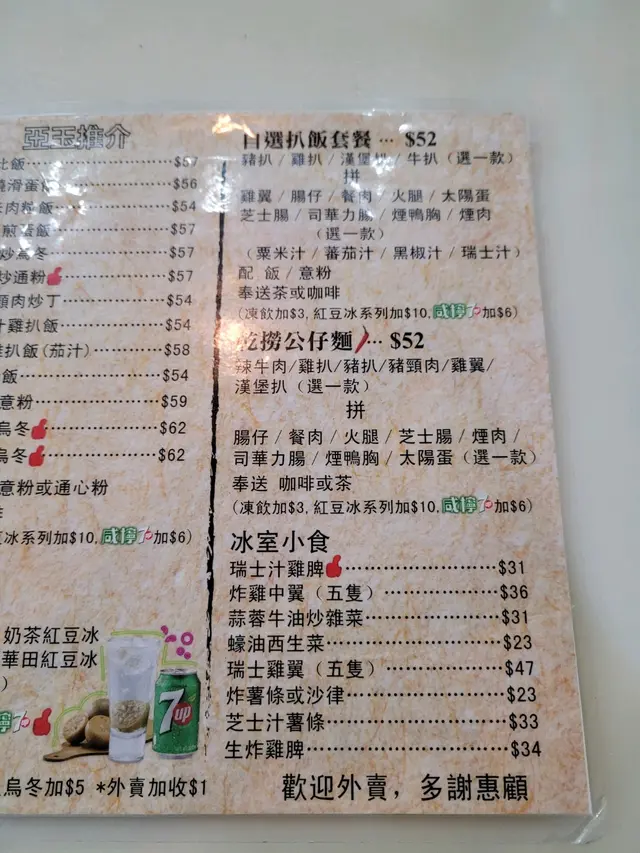 亞玉推介
飯⋯⋯$57
滑蛋⋯⋯$56
飯⋯⋯$54
煎蛋飯⋯⋯$57
炒烏冬⋯⋯$57
炒通粉⋯⋯$57
頸肉炒丁⋯⋯$54
汁雞扒飯⋯⋯$54
扒飯(茄汁)⋯⋯$58
飯⋯⋯$54
意粉⋯⋯$59
烏冬⋯⋯$62
烏冬⋯⋯$62
意粉或通心粉
冰系列加$10, 咸檸7加$6)
奶茶紅豆冰
華田紅豆冰
)
檸7
7up
烏冬加$5 *外賣加收$1
自選扒飯套餐 ⋯ $52
豬扒 / 雞扒 / 漢堡扒 / 牛扒 (選一款)
拼
雞翼 / 腸仔 / 餐肉 / 火腿 / 太陽蛋
芝士腸 / 司華力腸 / 煙鴨胸 / 煙肉
(選一款)
(粟米汁 / 蕃茄汁 / 黑椒汁 / 瑞士汁)
配 飯 / 意粉
奉送茶或咖啡
(凍飲加$3, 紅豆冰系列加$10, 咸檸7加$6)
乾撈公仔麵⋯ $52
辣牛肉/雞扒/豬扒/豬頸肉/雞翼/
漢堡扒 (選一款)
拼
腸仔 / 餐肉 / 火腿 / 芝士腸 / 煙肉 /
司華力腸 / 煙鴨胸 / 太陽蛋 (選一款)
奉送 咖啡或茶
(凍飲加$3, 紅豆冰系列加$10, 咸檸7加$6)
冰室小食
瑞士汁雞脾⋯⋯$31
炸雞中翼 (五隻)⋯⋯$36
蒜蓉牛油炒雜菜⋯⋯$31
蠔油西生菜⋯⋯$23
瑞士雞翼 (五隻)⋯⋯$47
炸薯條或沙律⋯⋯$23
芝士汁薯條⋯⋯$33
生炸雞脾⋯⋯$34
歡迎外賣, 多謝惠顧